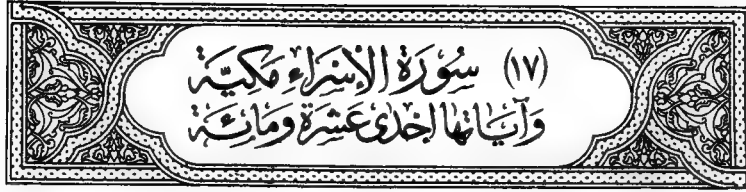 (١٧) سُورَة الإسْرَاءِ مَكيّة
وَآيَاتها إحْدَى عَشرَة وَمَائة